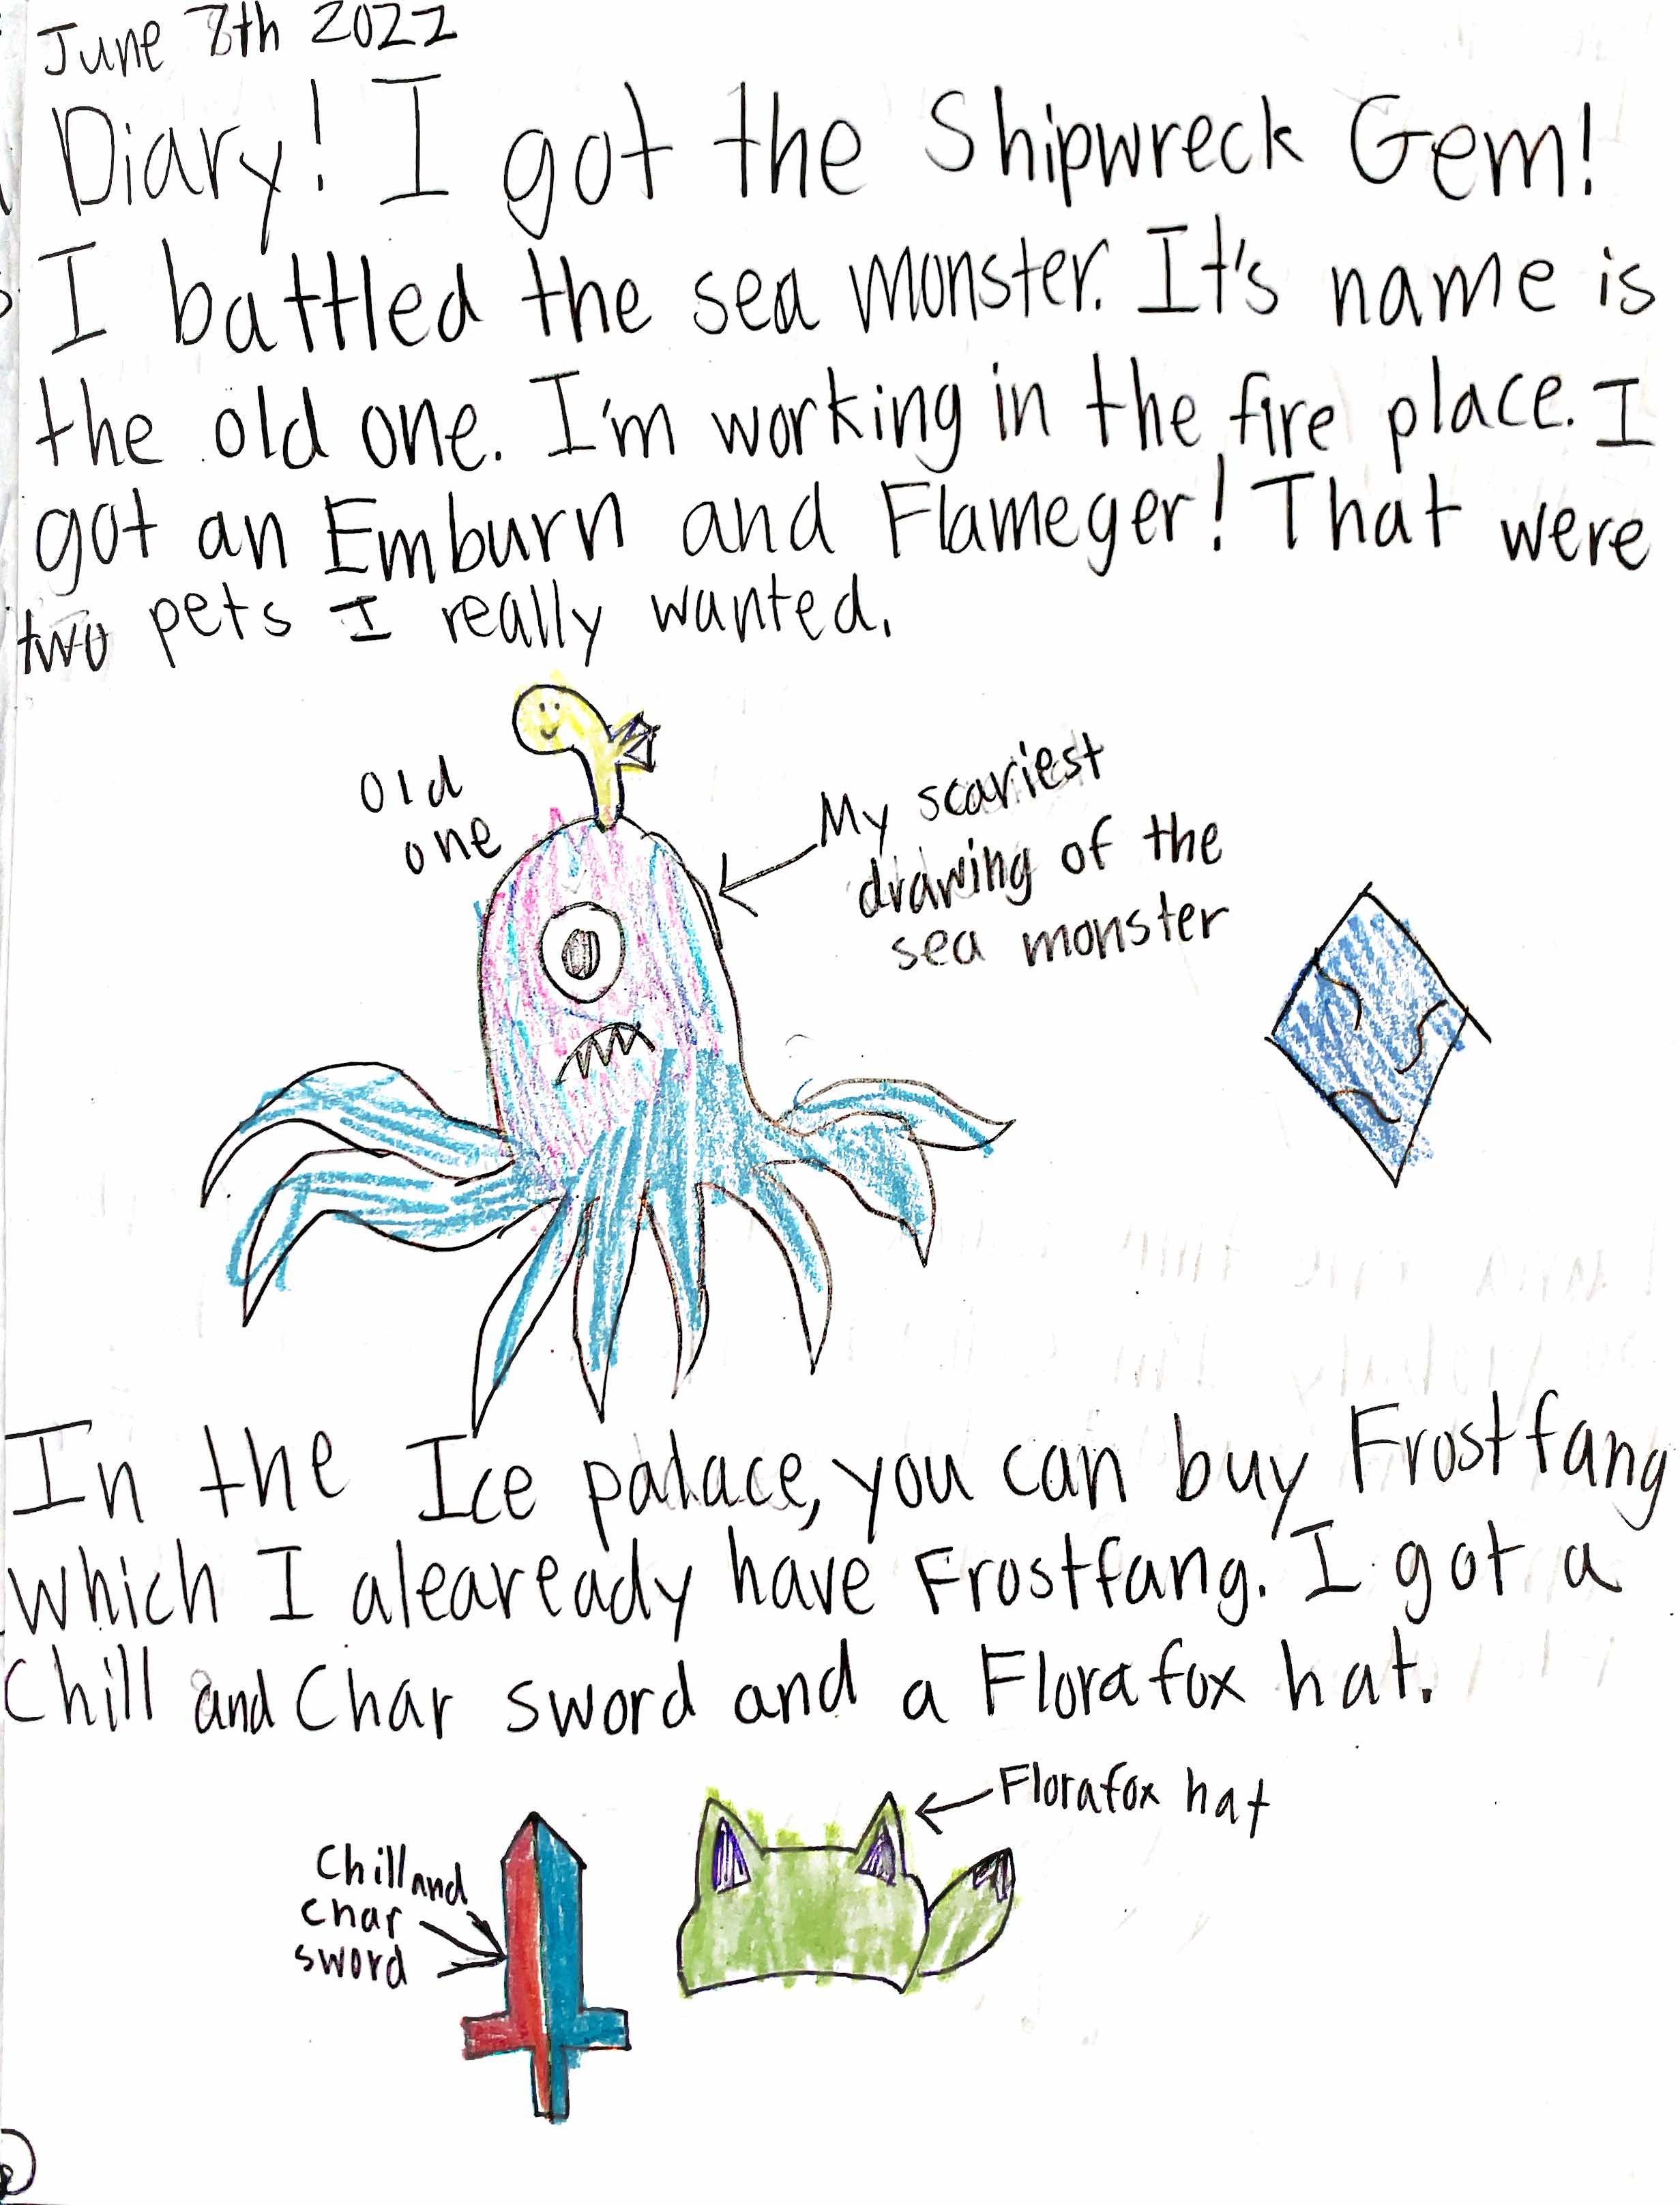 June 8th 2022
Diary! I got the Shipwreck Gem!
I battled the sea monster. It's name is
the old one. I'm working in the fire place. I
got an Emburn and Flameger! That were
two pets I really wanted.
old
one
My scariest
drawing of the
sea monster
In the Ice palace, you can buy Frostfang
which I aleaready have Frostfang. I got a
Chill and Char sword and a Florafox hat.
Florafox hat
Chill and
char
sword